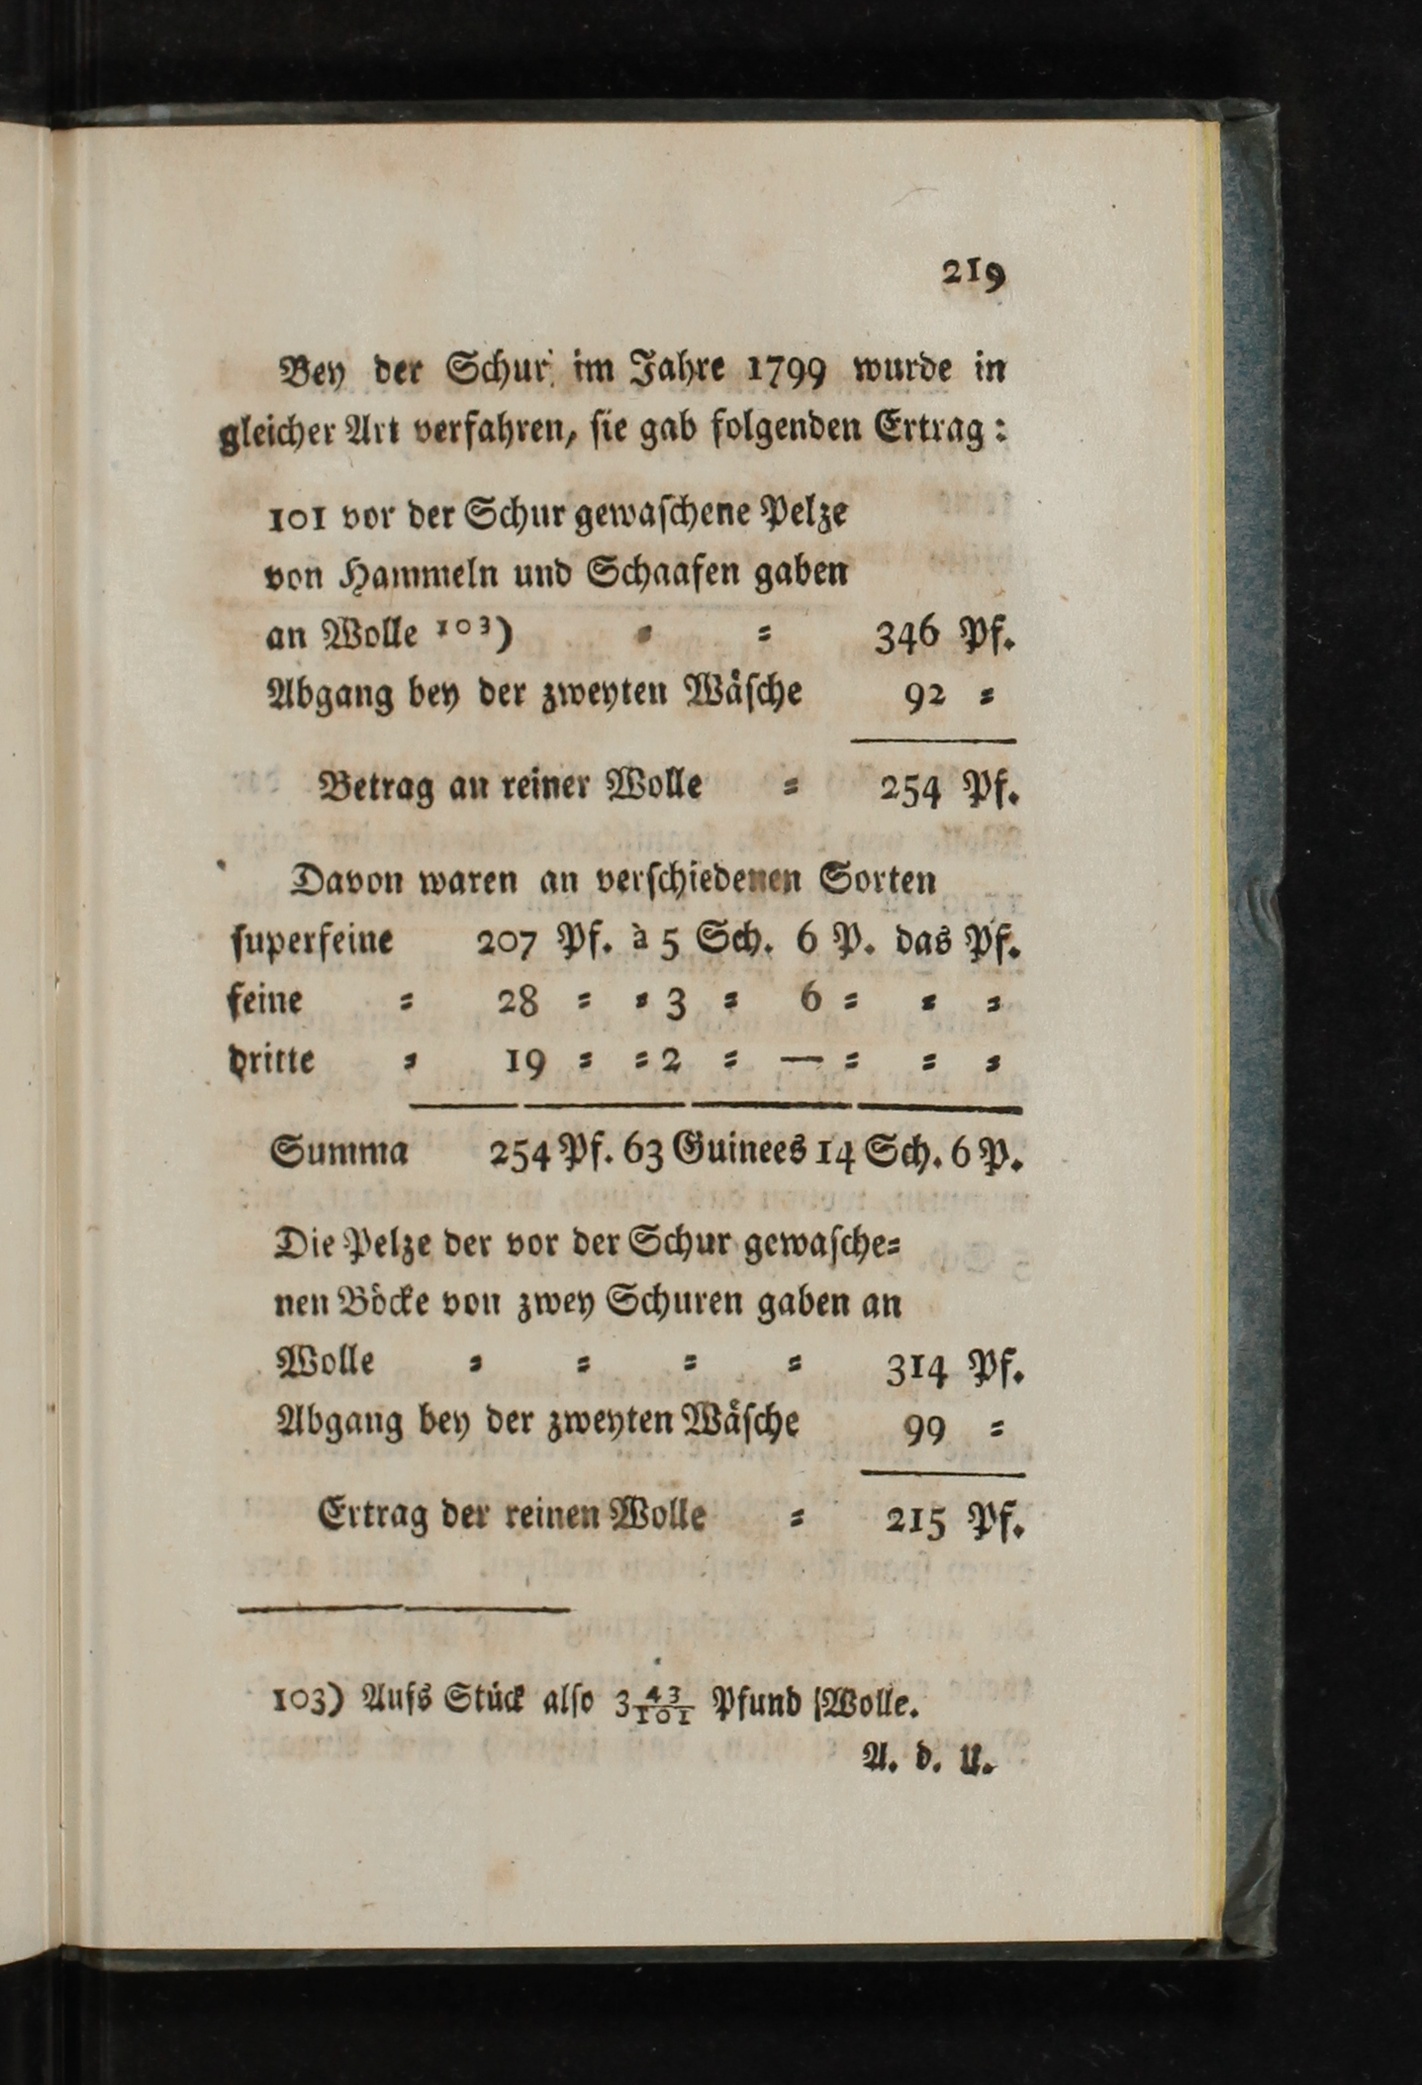 219
Bey der Schur im Jahre 1799 wurde in
gleicher Art verfahren, ſie gab folgenden Ertrag:
101 vor der Schur gewaſchene Pelze
von Hammeln und Schaafen gaben
an Wolle ¹⁰³) = = 346 Pf.
Abgang bey der zweyten Wäſche 92 =
Betrag an reiner Wolle = 254 Pf.
Davon waren an verſchiedenen Sorten
ſuperfeine 207 Pf. à 5 Sch. 6 P. das Pf.
feine = 28 = = 3 = 6 = = =
dritte = 19 = = 2 = — = = =
Summa 254 Pf. 63 Guinees 14 Sch. 6 P.
Die Pelze der vor der Schur gewaſche=
nen Böcke von zwey Schuren gaben an
Wolle = = = = 314 Pf.
Abgang bey der zweyten Wäſche 99 =
Ertrag der reinen Wolle = 215 Pf.
103) Aufs Stück alſo 3 43/101 Pfund Wolle.
A. d. U.